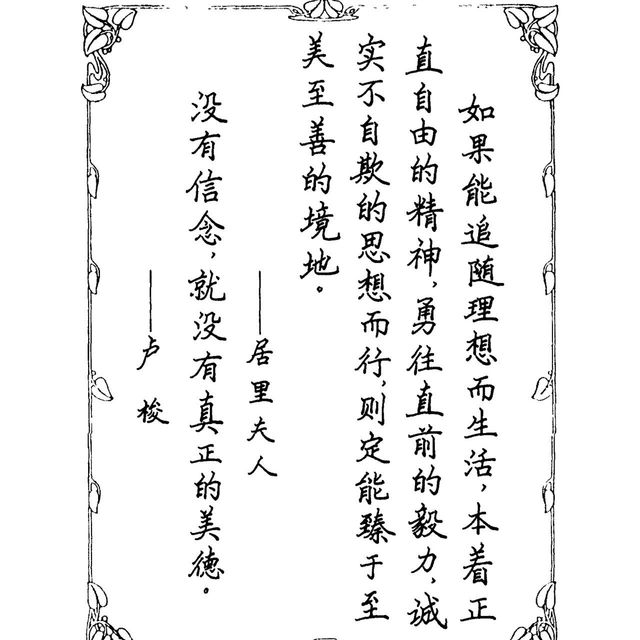 如果能追随理想而生活，本着正
直自由的精神，勇往直前的毅力，诚
实不自欺的思想而行，则定能臻于至
美至善的境地。
——居里夫人
没有信念，就没有真正的美德。
——卢梭